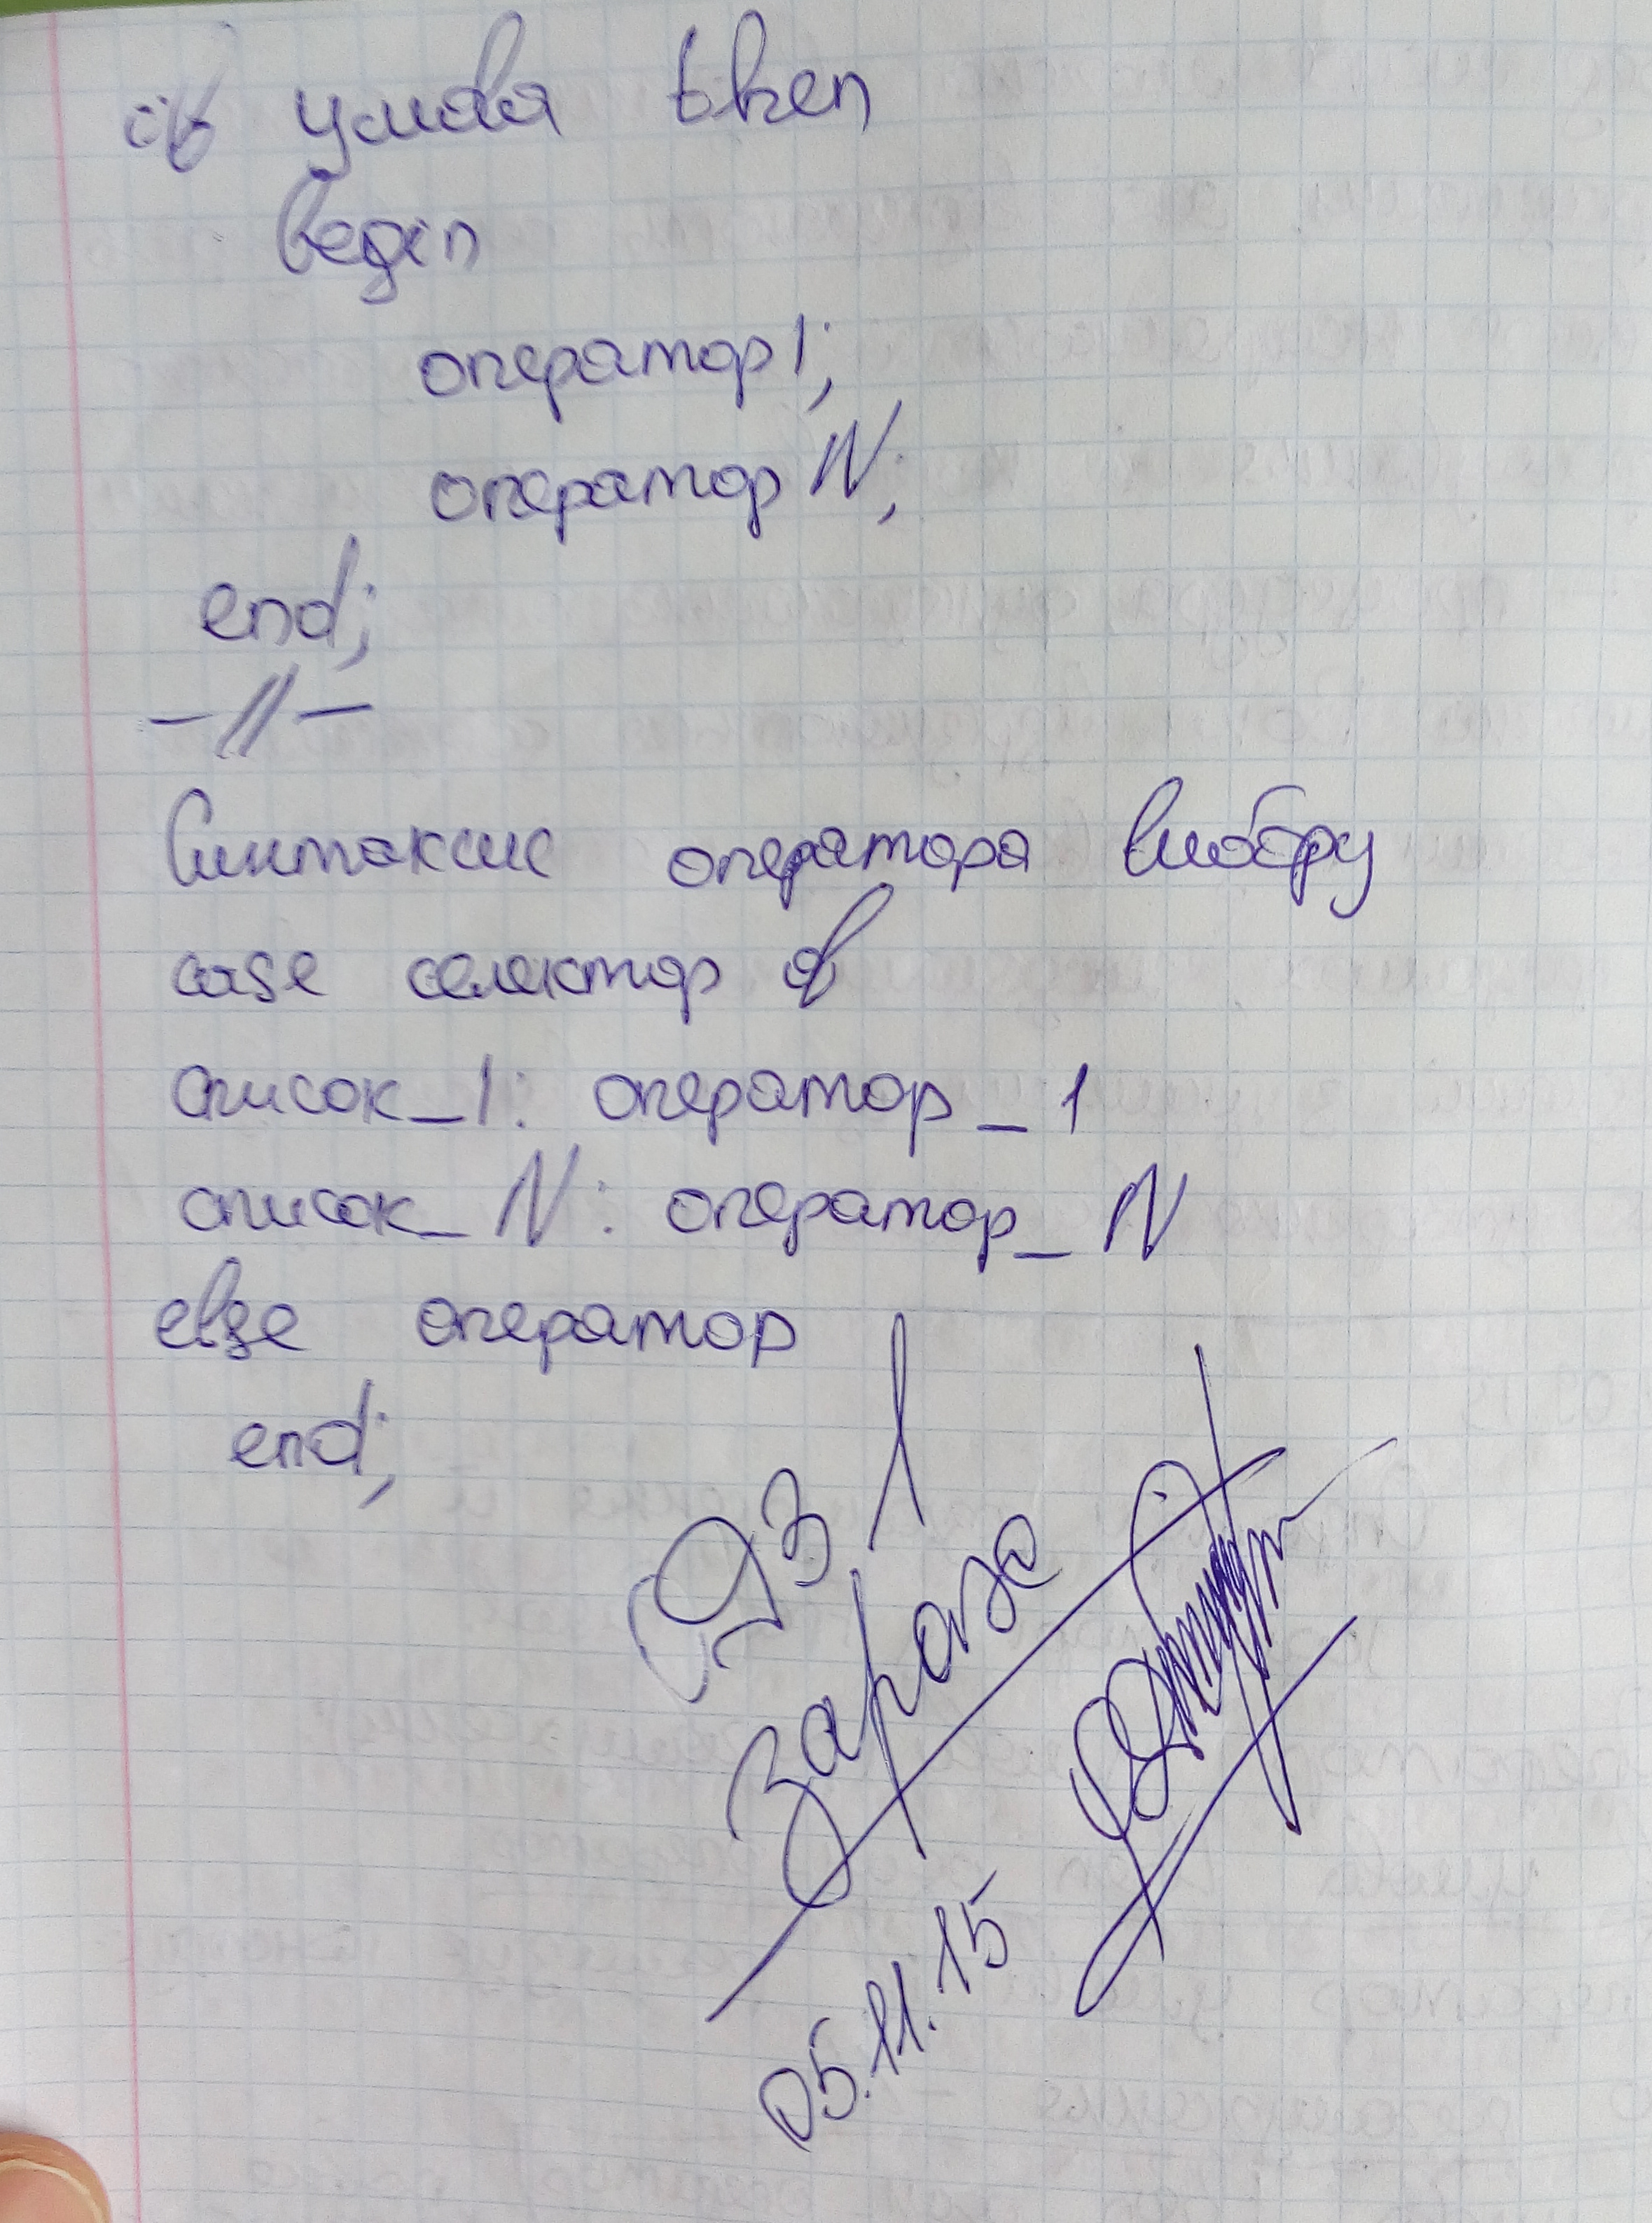 if умова then
begin
оператор1;
оператор N;
end;
–//–
Синтаксис оператора вибору
case селектор of
список_1: оператор_1
список_N: оператор_N
else оператор
end;
05.11.15